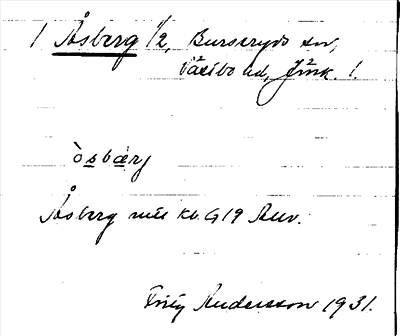 1 Åsberg 1/2, Burseryds sn,
Västbo hd, Jönk. l.
òsbærj
Åsberg mtl kb. G 19 Auv.
Fritz Andersson 1931.